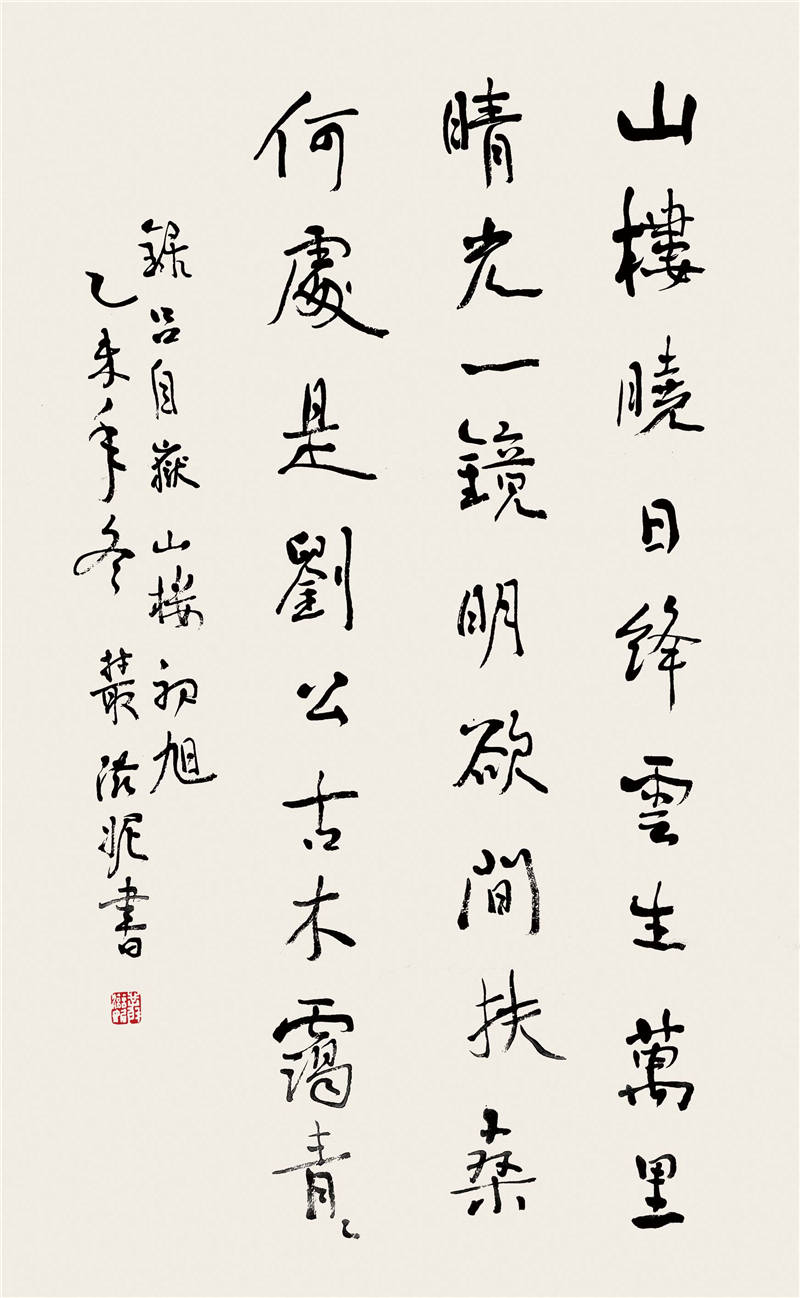 山樓曉日絳雲生萬里
晴光一鏡明欲問扶桑
何處是劉公古木靄青〻
録吕自嶽山樓初旭
乙未年冬叢滋妮書